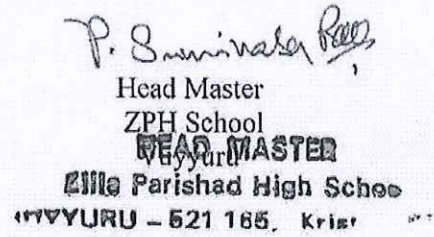 P. Srinivasa Rao
Head Master
ZPH School
Vuyyuru
HEAD MASTER
Zilla Parishad High Schoo
VUYYURU - 521 165, Krist